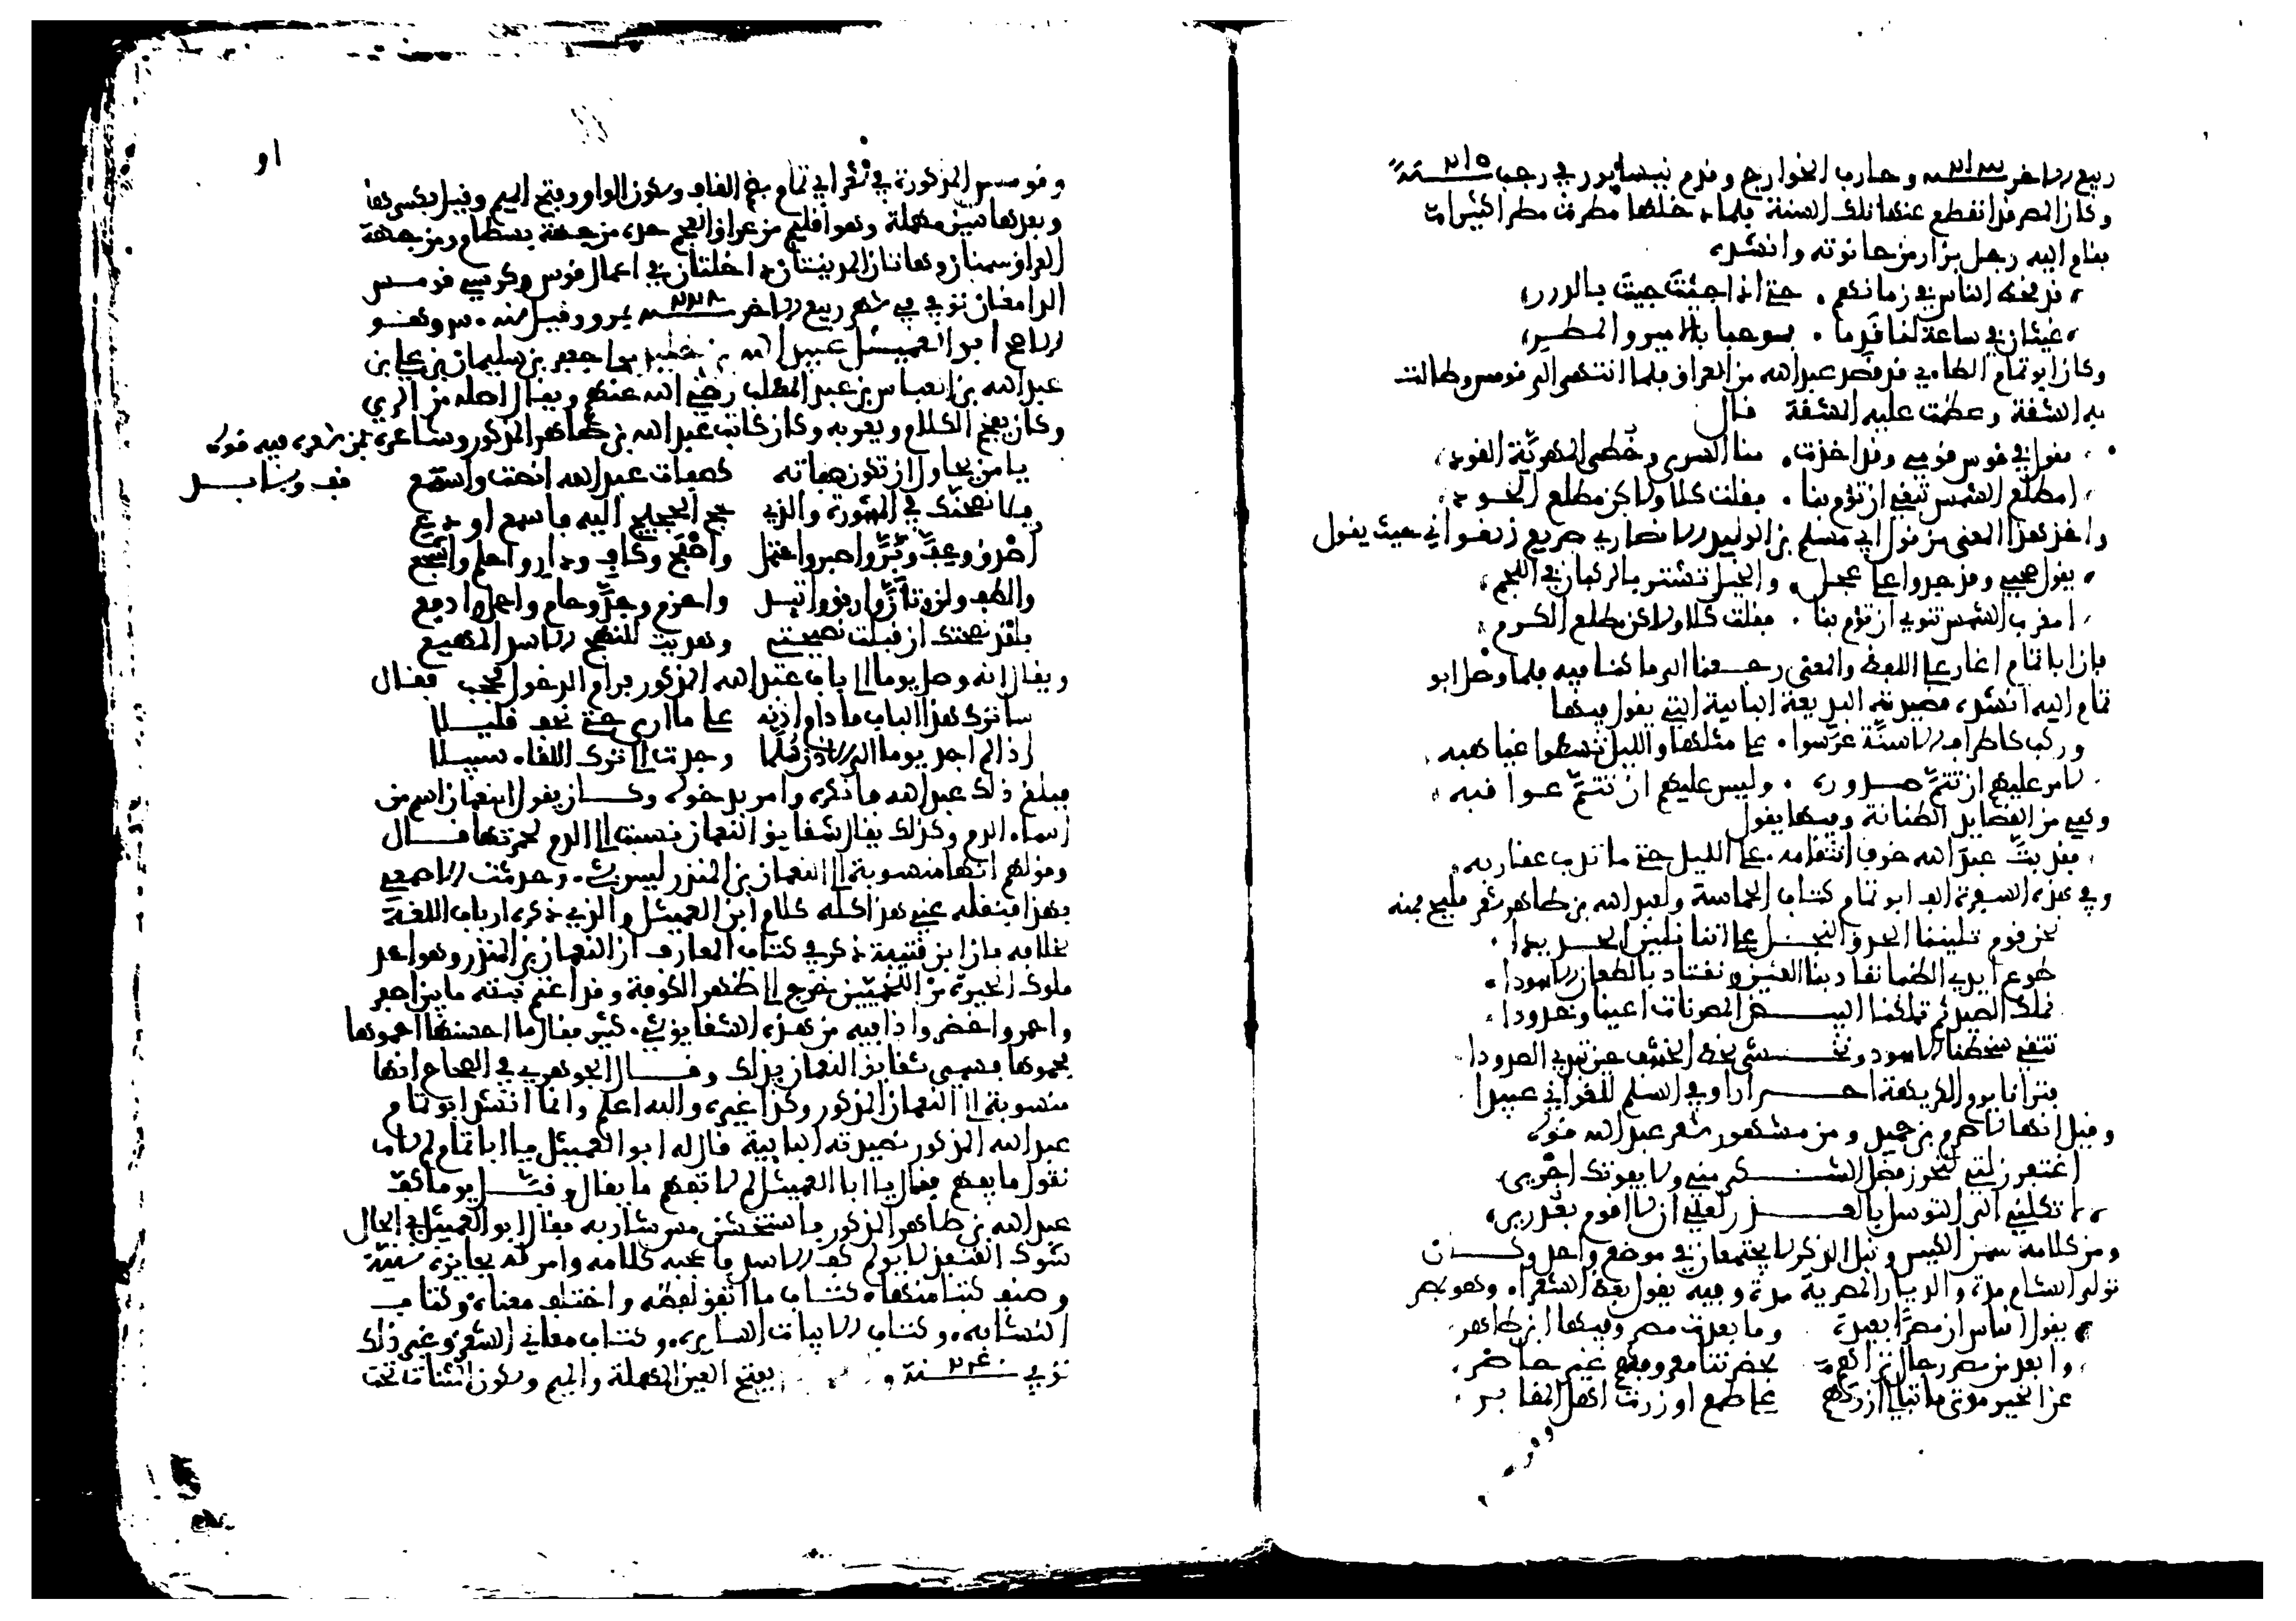 ربيع الاخر سنة ٢١٣ وحارب الخوارج وقدم نيسابور في رجب سنة ٢١٥
وكان المطر قد انقطع عنها تلك السنة فلما دخلها مطرت مطرا كثيرا
فقام اليه رجل بزاز من حانوته وانشده
قد قحط الناس في زمانهم حتى اذا جئت جيت بالدرر
غيثان في ساعة لنا قدما فمرحبا بالامير والمطر
وكان ابو تمام الطائي قد قصد عبد الله من العراق فلما انتهى الى قومس وطالت
به الشقة وعظمت عليه المشقة قال
يقول في قومس قومي وقد اخذت منا السرى وخطى المهرية القود
امطلع الشمس تبغي ان تؤم بنا فقلت كلا ولاكن مطلع الجود
واخذ هذا المعنى من قول ابي مسلم بن الوليد الانصاري صريع الغواني حيث يقول
يقول صحبي وقد جدوا على عجل والخيل تستن بالركبان في اللجم
امغرب الشمس تنوي ان تؤم بنا فقلت كلا ولاكن مطلع الكرم
فان ابا تمام اغار على اللفظ والمعنى رجعنا الى ما كنا فيه فلما وصل ابو
تمام اليه انشده قصيدته البديعة البائية التي يقول فيها
وركب كاطراف الاسنة عرسوا على مثلها والليل تسطوا غياهبه
لامر عليهم ان تتم صدوره وليس عليهم ان تتم عواقبه
وهي من القصايد الطنانة وفيها يقول
فقد بث عبد الله خوف انتقامه على الليل حتى ما تدب عقاربه
وفي هذه السفرة الف ابو تمام كتاب الحماسة ولعبد الله بن طاهر شعر مليح فمنه
نحن قوم تليننا الحدق النجل على اننا نلين الحديدا
طوع ايدي الظبا تقادنا العين ونقتاد بالطعان الاسودا
نملك الصيد ثم تملكنا البيض المصونات اعينا وخدودا
تتقي سخطنا الاسود ونخشى سخط الخشف حين تبدي الصدودا
فترانا يوم الكريهة احرارا وفي السلم للغواني عبيدا
وقيل انها لاصرم بن حميد ومن مشهور شعر عبد الله قوله
اغتفر زلتي لتحرز فضل الشكر مني ولا يفوتك اجري
لا تكلني الى التوسل بالعذر لعلي ان لا اقوم بعذري
ومن كلامه سمن الكيس ونبل الذكر لا يجتمعان في موضع واحد وكان
تولى الشام مدة والديار المصرية مدة وفيه يقول بعض الشعراء وهو بمصر
يقول اناس ان مصرا بعيدة وما بعدت مصر وفيها ابن طاهر
وابعد من مصر رجال تراهم بحضرتنا معروفهم غير حاضر
عن الخير موتى ما تبالي ازرتهم على طمع او زرت اهل المقابر
وقومس المذكورة في شعر ابي تمام بضم القاف وسكون الواو وفتح الميم وقيل بكسرها
وبعدها سين مهملة وهو اقليم من عراق العجم حده من جهة بسطام ومن جهة
العراق سمنان وهاتان المدينتان داخلتان في اعمال قومس وكرسي قومس
الدامغان توفي في شهر ربيع الاخر سنة ٢٢٨ بمرو وقيل
ابو العميثل عبيد الله بن جعفر بن سليمان بن علي بن
عبد الله بن العباس بن عبد المطلب رضي الله عنهم ويقال اصله من الري
وكان يفخم الكلام ويعربه وكان كاتب عبد الله بن طاهر المذكور وشاعره فمن شعره فيه قوله
يا من يحاول ان تكون صفاته كصفات عبد الله انصت واسمع
فلا نصحنك في المشورة والذي حج الحجيج اليه فاسمع او دع
اصدق وعف وبر واصبر واحتمل واصفح وكاف ودار واحلم واشجع
والطف ولن وتأن وارفق واتئد واحزم وجد وحام واحمل وادفع
فلقد نصحتك ان قبلت نصيحتي وهديت للنهج الاسد المهيع
ويقال انه وصل يوما الى باب عبد الله المذكور فرام الدخول فحجب فقال
ساترك هذا الباب ما دام اذنه على ما ارى حتى يخف قليلا
اذا لم اجد يوما الى الاذن سلما وجدت الى ترك اللقاء سبيلا
فبلغ ذلك عبد الله فانكره وامر بدخوله وكان يقول النعمان اسم من
اسماء الدم وكذلك يقال شقايق النعمان نسبت الى الدم لحمرتها قال
وقولهم انها منسوبة الى النعمان بن المنذر ليس بشي وحدثت الاصمعي
بهذا فنقله عني هذا كله كلام ابن العميثل والذي ذكره ارباب اللغة
بخلافه فان ابن قتيبة ذكر في كتاب المعارف ان النعمان بن المنذر وهو احد
ملوك الحيرة من اللخميين خرج الى ظهر الكوفة وقد اعتم نبته ما بين اصفر
واحمر واخضر واذا فيه من هذه الشقايق شي كثير فقال ما احسنها احموها
فحموها فسمي شقايق النعمان بذلك وقال الجوهري في الصحاح انها
منسوبة الى النعمان المذكور وكذا غيره والله اعلم ولما انشد ابو تمام
عبد الله المذكور قصيدته البائية قال له ابو العميثل يا ابا تمام لم لا
تقول ما يفهم فقال يا ابا العميثل لم لا تفهم ما يقال وقبل يوما كف
عبد الله بن طاهر المذكور فاستخشن مس شاربه فقال ابو العميثل في الحال
شوك القنفذ لا يؤلم كف الاسد فاعجبه كلامه وامر له بجايزة سنية
وصنف كتبا منها كتاب ما اتفق لفظه واختلف معناه وكتاب
التشابه وكتاب الابيات السايرة وكتاب معاني الشعر وغير ذلك
توفي سنة ٢٤٠ و بفتح العين المهملة والميم وسكون المثناة تحت